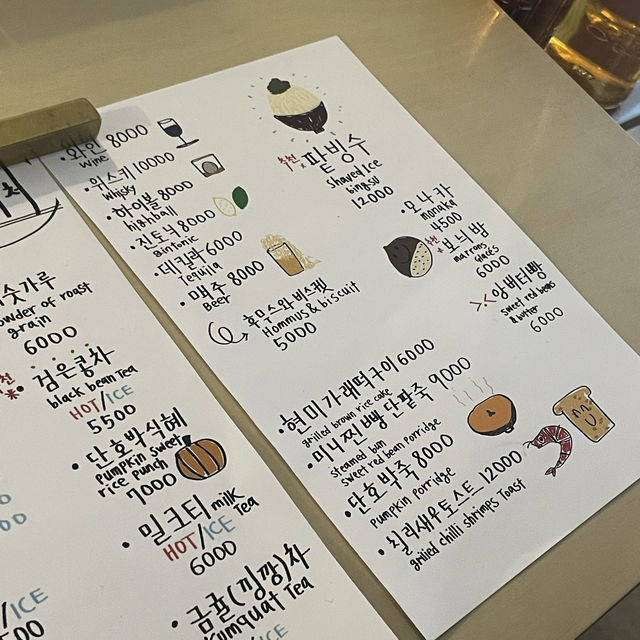 숫가루
powder of roast
grain
6000
검은콩차
black bean Tea
HOT/ICE
5500
단호박식혜
pumpkin sweet
rice punch
7000
밀크티 milk Tea
HOT/ICE
6000
금귤(낑깡)차
kumquat Tea
/ICE
와인 8000
wine
위스키 10000
whisky
하이볼 8000
highball
진토닉 8000
Gintonic
데킬라 6000
Tequila
맥주 8000
Beer
후무스와비스켓
Hommus & biscuit
5000
추천 팥빙수
shaved Ice
bingsu
12000
모나카
monaka
4500
추천 보늬밤
marrons
glacés
6000
앙버터빵
sweet red beans
& butter
6000
현미가래떡구이 6000
grilled brown rice cake
미니찐빵 단팥죽 9000
steamed bun
sweet red bean porridge
단호박죽 8000
pumpkin porridge
칠리새우토스트 12000
grilled chilli shrimps Toast